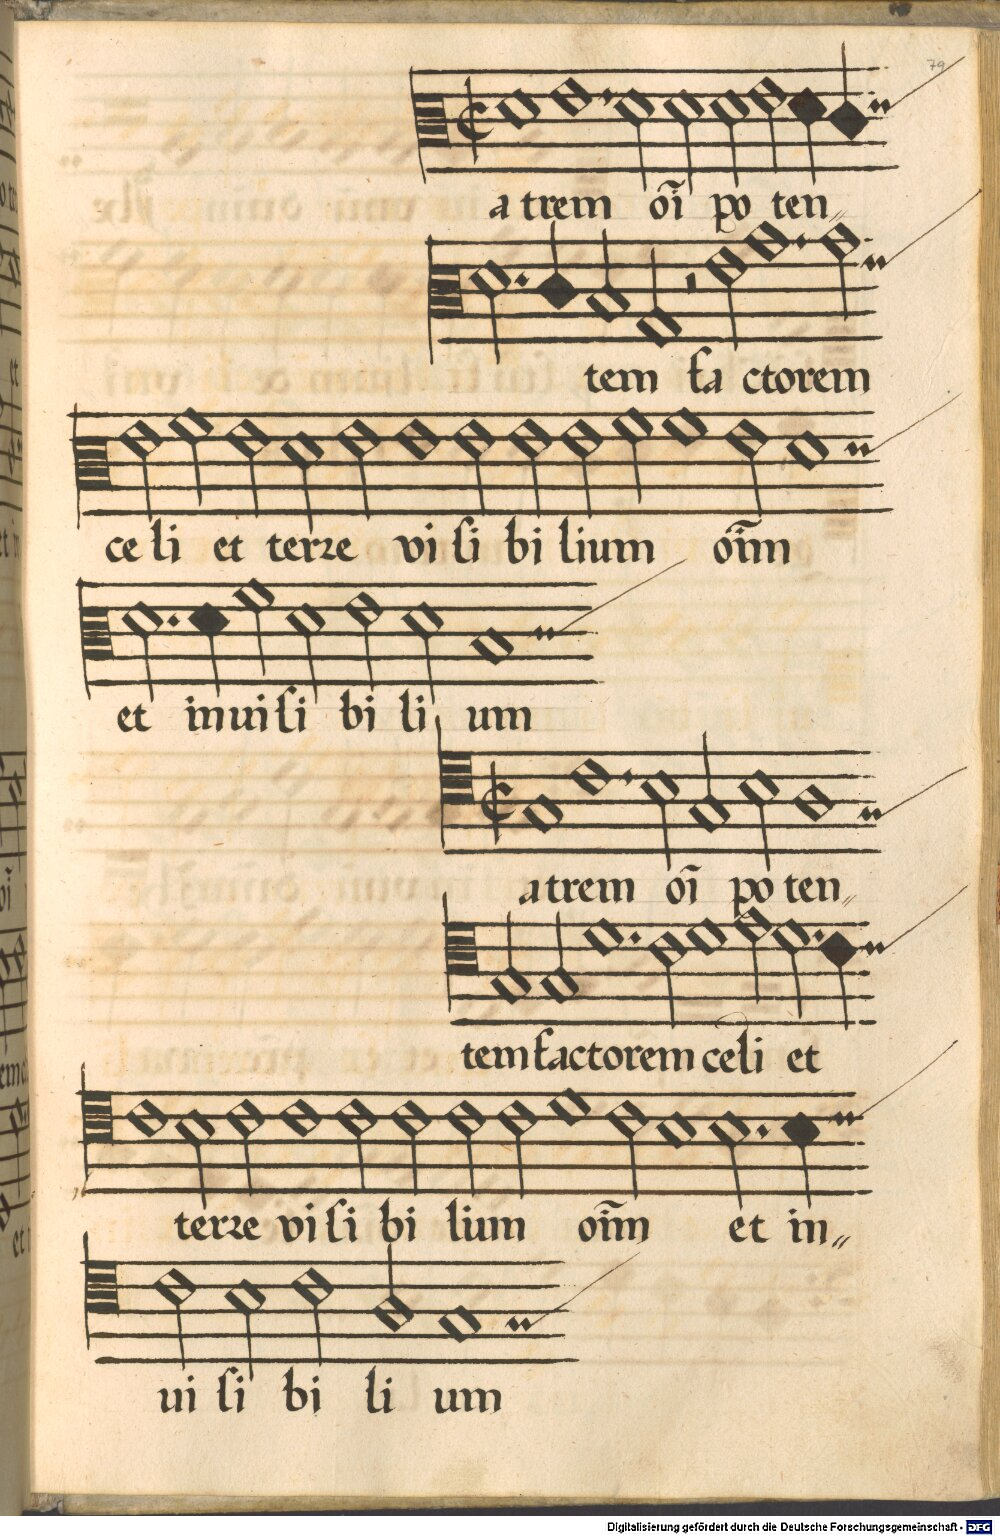 79
a trem oı̄ po ten„
tem fa ctorem
celi et terre visi bi lium oı̄m
et inuisi bi li um
atrem oı̄ po ten„
tem factorem celi et
terre visi bi lium oı̄m et in„
ui si bi li um
Digitalisierung gefördert durch die Deutsche Forschungsgemeinschaft - DFG